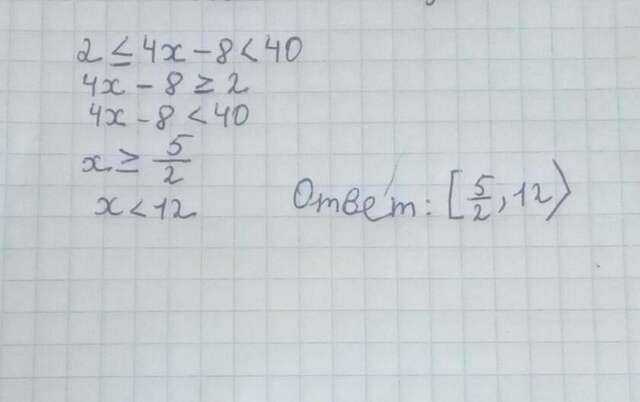 2 ≤ 4x - 8 < 40
4x - 8 ≥ 2
4x - 8 < 40
x ≥ 5/2
x < 12
Ответ: [5/2, 12⟩